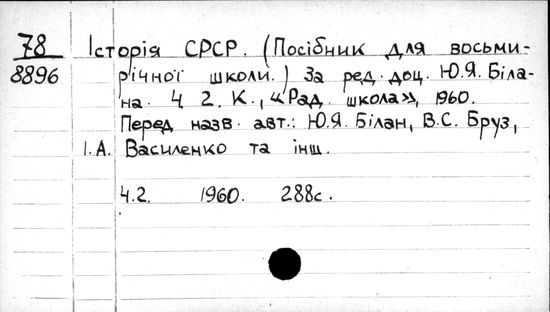 78 Історія СРСР. (Посібник для восьми-
8896 річної школи.) За ред. доц. Ю.Я. Біла-
на. Ч 2. К., «Рад. школа», 1960.
Перед назв. авт.: Ю.Я. Білан, В.С. Бруз,
І.А. Василенко та інш.
Ч.2. 1960. 288с.